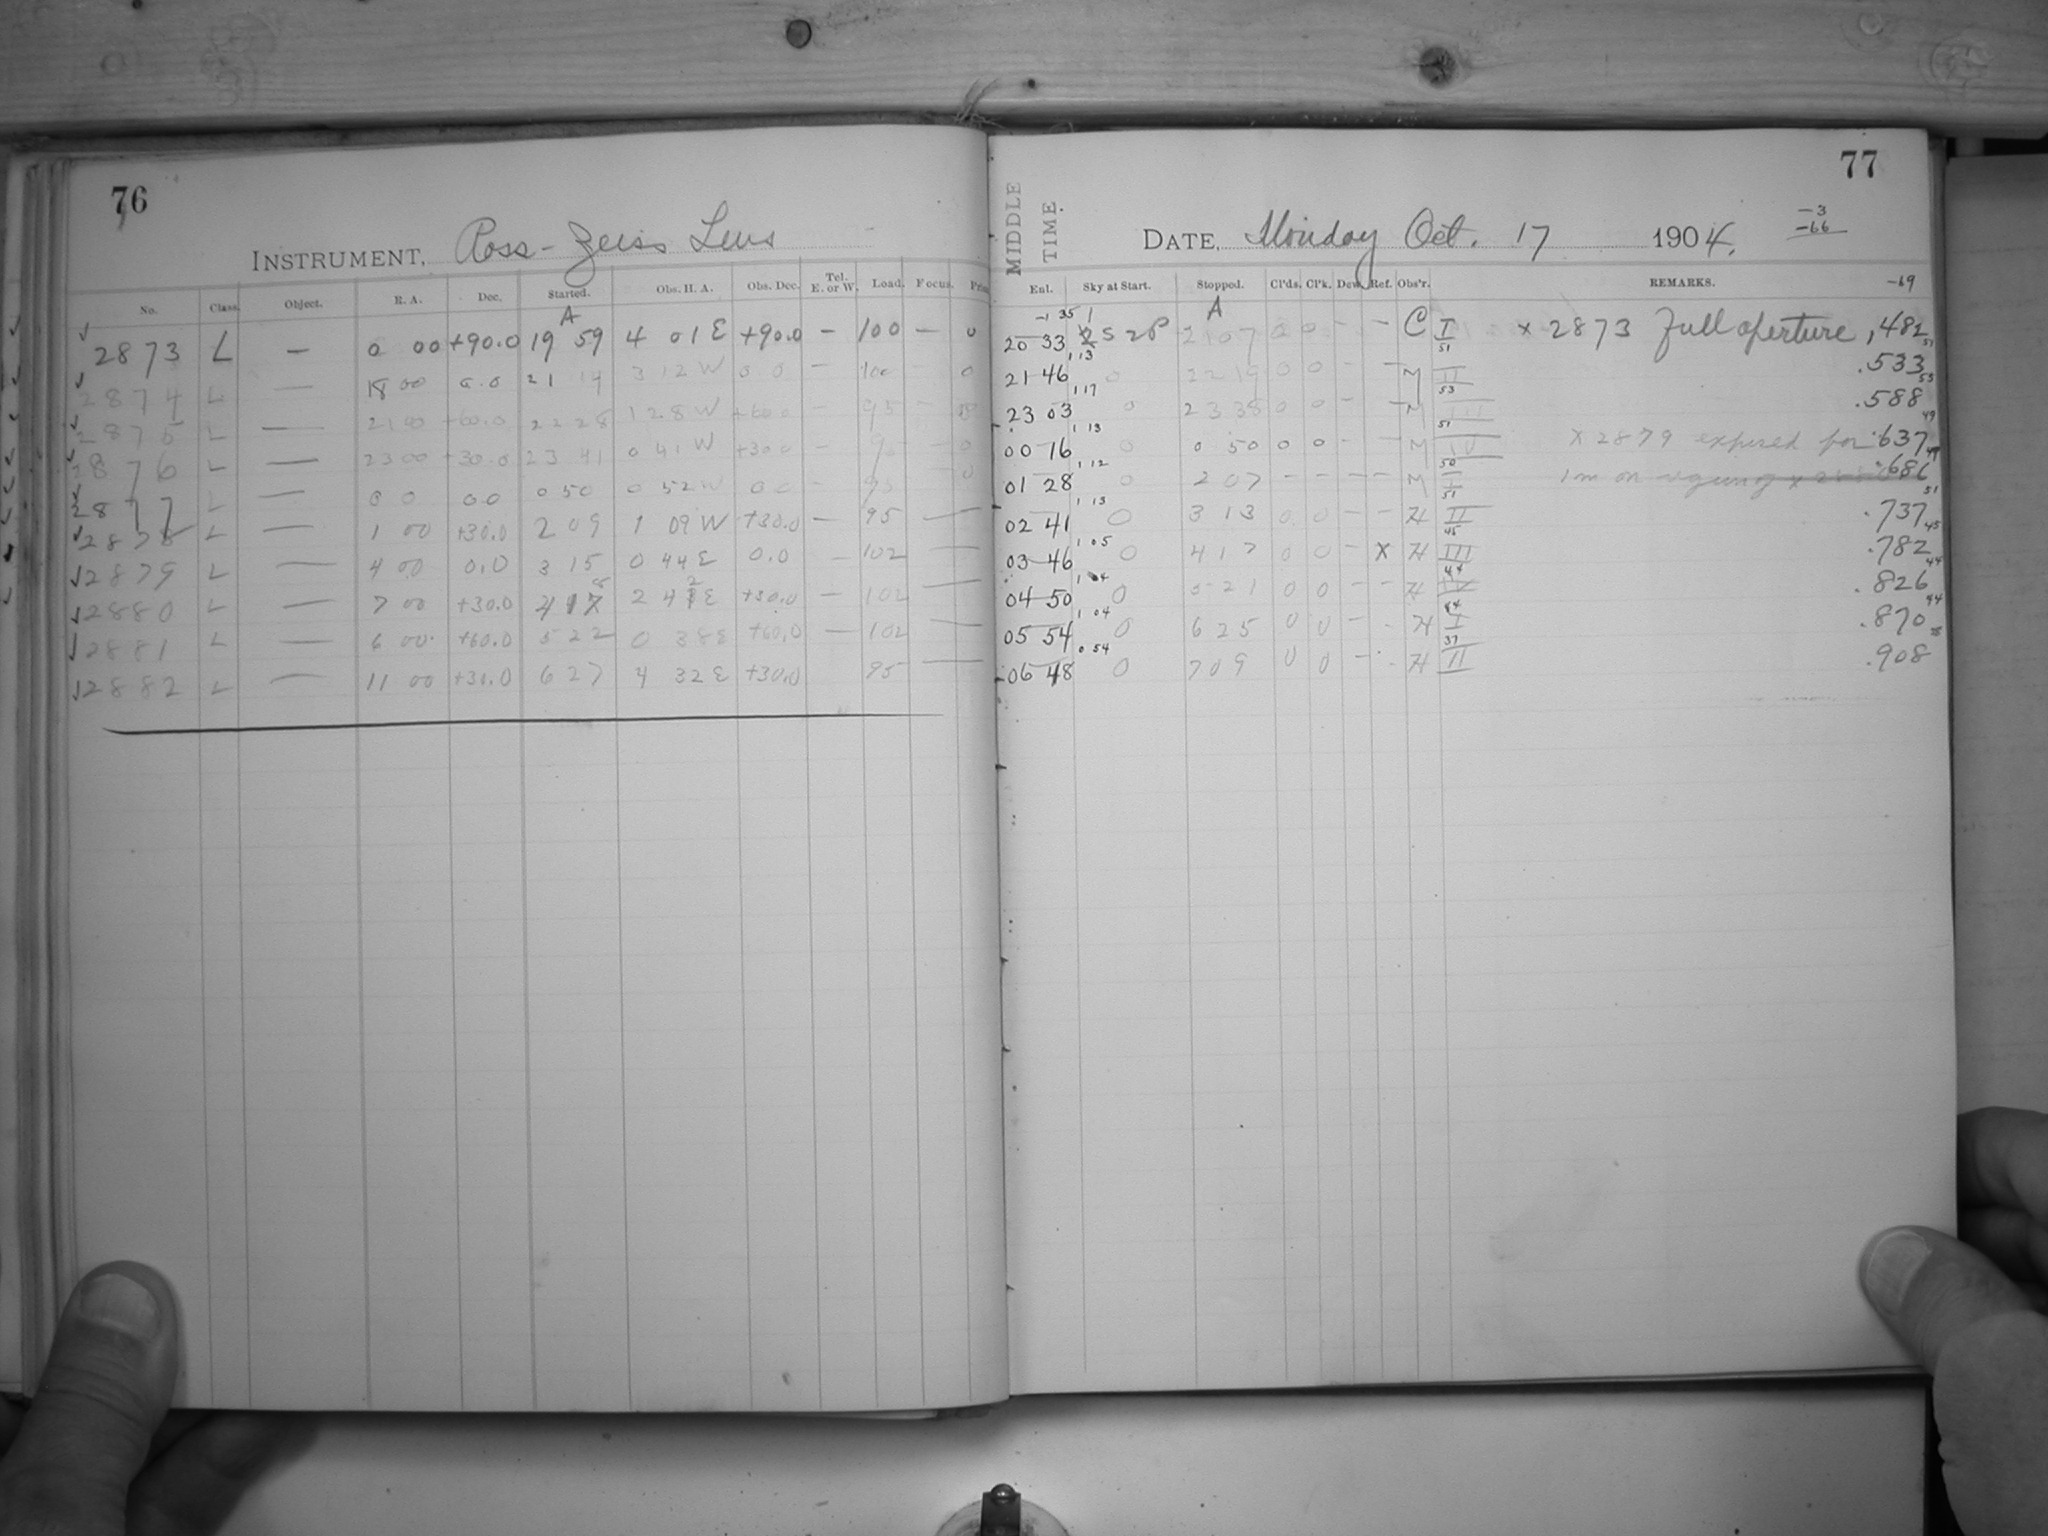 76
INSTRUMENT, Ross-Zeiss Lens
No. Class. Object. R. A. Dec. Started. Obs. H. A. Obs. Dec. Tel. E. or W. Load. Focus.
A
2873 L — 0 00 +90.0 19 59 4 01 E +90.0 — 100 — 0
2874 L — 18 00 0.0 21 14 3 12 W 0 0 — 100 — 0
2875 L — 21 00 +60.0 22 28 1 28 W +60.0 — 95 —
2876 L — 23 00 +30.0 23 41 0 41 W +30.0 — — 0
2877 L — 0 0 0.0 0 50 0 52 W 0 0 — 0
2878 L — 1 00 +30.0 2 09 1 09 W +30.0 — 95 —
2879 L — 4 00 0.0 3 15 0 44 E 0.0 — 102 —
2880 L — 7 00 +30.0 4 18 2 42 E +30.0 — 102 —
2881 L — 6 00 +60.0 5 22 0 38 E +60.0 — 102 —
2882 L — 11 00 +30.0 6 27 4 32 E +30.0 95 —
77
MIDDLE TIME
DATE, Monday Oct. 17 1904.
-3
-66
-69
Enl. Sky at Start. Stopped. Cl'ds. Cl'k. Dew. Ref. Obs'r. REMARKS.
A
20 33 S 2P 21 07 0 0 - - C I x 2873 Full aperture .482
51
1 13
21 46 0 22 19 0 0 - - M II .533
53
1 17
23 03 0 23 38 0 0 - - M III .588
51
1 13
00 16 0 0 50 0 0 - - M IV x 2879 exposed for .637
50
1 12
01 28 0 2 07 - - - - M I 1m on .686
51
1 13
02 41 0 3 13 0 0 - - H II .737
45
1 05
03 46 0 4 17 0 0 - x H III .782
44
1 04
04 50 0 5 21 0 0 - - H IV .826
44
1 04
05 54 0 6 25 0 0 - - H I .870
37
0 54
06 48 0 7 09 0 0 - - H II .908